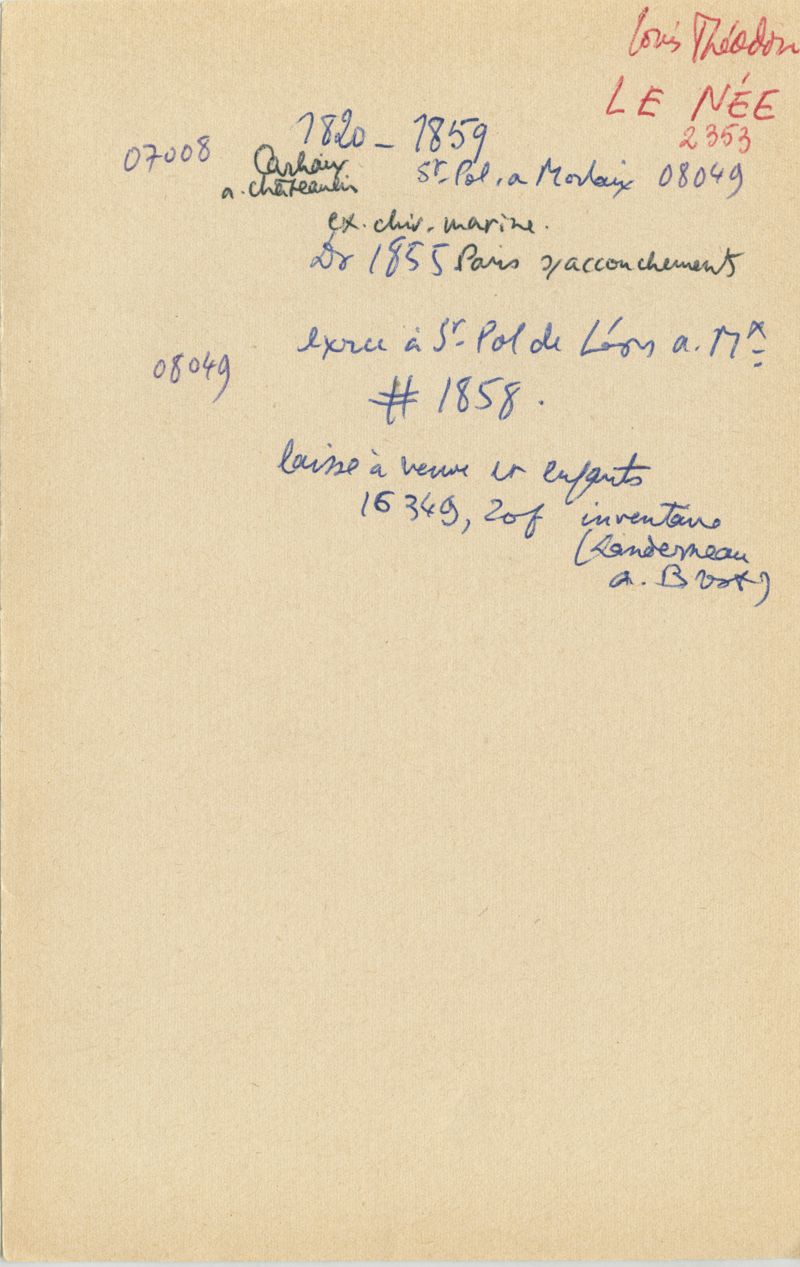 Louis Théodore
LE NÉE
2353
1820 - 1859
07008 Carhaix St-Pol. a Morlaix 08049
a. châteaulin
ex. chir. marine.
Dr 1855 Paris s/accouchements
08049 exerce à St-Pol de Léon a. Mx
# 1858.
laisse à veuve et enfants
16349, 20f inventaire
(Landerneau
a. Brest)